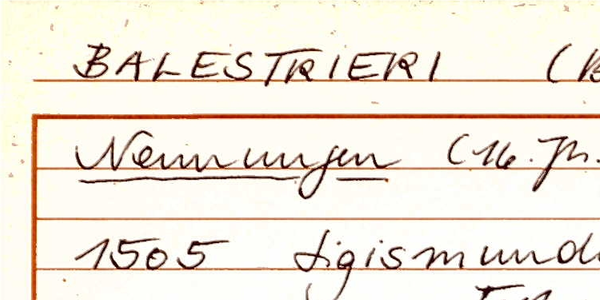 BALESTRIERI (B
Nennungen (16. Jh.
1505 Sigismund